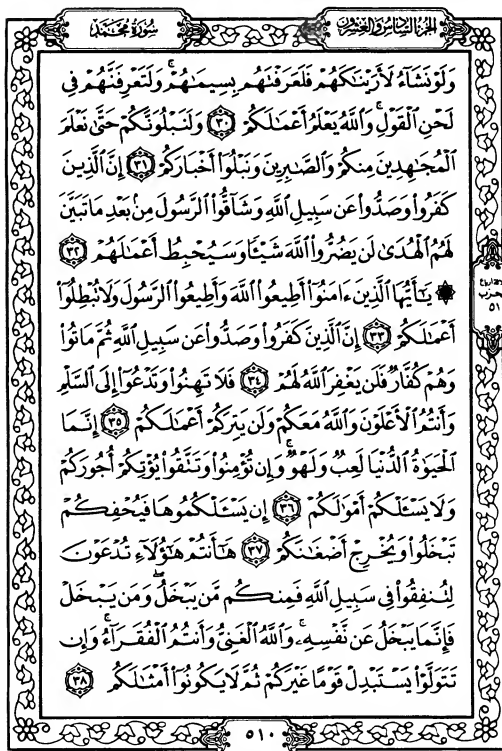 الجزء السادس والعشرون
سورة محمد
وَلَوْ نَشَآءُ لَأَرَيْنَٰكَهُمْ فَلَعَرَفْتَهُم بِسِيمَٰهُمْ ۚ وَلَتَعْرِفَنَّهُمْ فِى
لَحْنِ ٱلْقَوْلِ ۚ وَٱللَّهُ يَعْلَمُ أَعْمَٰلَكُمْ ٣٠ وَلَنَبْلُوَنَّكُمْ حَتَّىٰ نَعْلَمَ
ٱلْمُجَٰهِدِينَ مِنكُمْ وَٱلصَّٰبِرِينَ وَنَبْلُوَا۟ أَخْبَارَكُمْ ٣١ إِنَّ ٱلَّذِينَ
كَفَرُوا۟ وَصَدُّوا۟ عَن سَبِيلِ ٱللَّهِ وَشَآقُّوا۟ ٱلرَّسُولَ مِنۢ بَعْدِ مَا تَبَيَّنَ
لَهُمُ ٱلْهُدَىٰ لَن يَضُرُّوا۟ ٱللَّهَ شَيْـًٔا وَسَيُحْبِطُ أَعْمَٰلَهُمْ ٣٢
۞ يَٰٓأَيُّهَا ٱلَّذِينَ ءَامَنُوٓا۟ أَطِيعُوا۟ ٱللَّهَ وَأَطِيعُوا۟ ٱلرَّسُولَ وَلَا تُبْطِلُوٓا۟
أَعْمَٰلَكُمْ ٣٣ إِنَّ ٱلَّذِينَ كَفَرُوا۟ وَصَدُّوا۟ عَن سَبِيلِ ٱللَّهِ ثُمَّ مَاتُوا۟
وَهُمْ كُفَّارٌ فَلَن يَغْفِرَ ٱللَّهُ لَهُمْ ٣٤ فَلَا تَهِنُوا۟ وَتَدْعُوٓا۟ إِلَى ٱلسَّلْمِ
وَأَنتُمُ ٱلْأَعْلَوْنَ وَٱللَّهُ مَعَكُمْ وَلَن يَتِرَكُمْ أَعْمَٰلَكُمْ ٣٥ إِنَّمَا
ٱلْحَيَوٰةُ ٱلدُّنْيَا لَعِبٌ وَلَهْوٌ ۚ وَإِن تُؤْمِنُوا۟ وَتَتَّقُوا۟ يُؤْتِكُمْ أُجُورَكُمْ
وَلَا يَسْـَٔلْكُمْ أَمْوَٰلَكُمْ ٣٦ إِن يَسْـَٔلْكُمُوهَا فَيُحْفِكُمْ
تَبْخَلُوا۟ وَيُخْرِجْ أَضْغَٰنَكُمْ ٣٧ هَٰٓأَنتُمْ هَٰٓؤُلَآءِ تُدْعَوْنَ
لِتُنفِقُوا۟ فِى سَبِيلِ ٱللَّهِ فَمِنكُم مَّن يَبْخَلُ ۖ وَمَن يَبْخَلْ
فَإِنَّمَا يَبْخَلُ عَن نَّفْسِهِۦ ۚ وَٱللَّهُ ٱلْغَنِىُّ وَأَنتُمُ ٱلْفُقَرَآءُ ۚ وَإِن
تَتَوَلَّوْا۟ يَسْتَبْدِلْ قَوْمًا غَيْرَكُمْ ثُمَّ لَا يَكُونُوٓا۟ أَمْثَٰلَكُم ٣٨
٥١
٥١٠